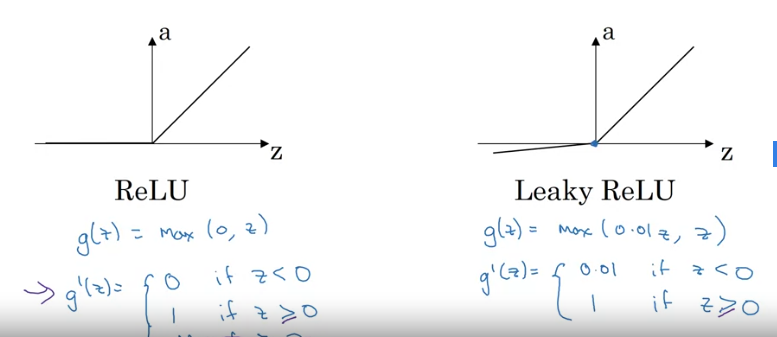 a
z
ReLU
g(z) = max (0, z)
g'(z) = { 0 if z < 0
1 if z ≥ 0
a
z
Leaky ReLU
g(z) = max (0.01z, z)
g'(z) = { 0.01 if z < 0
1 if z ≥ 0